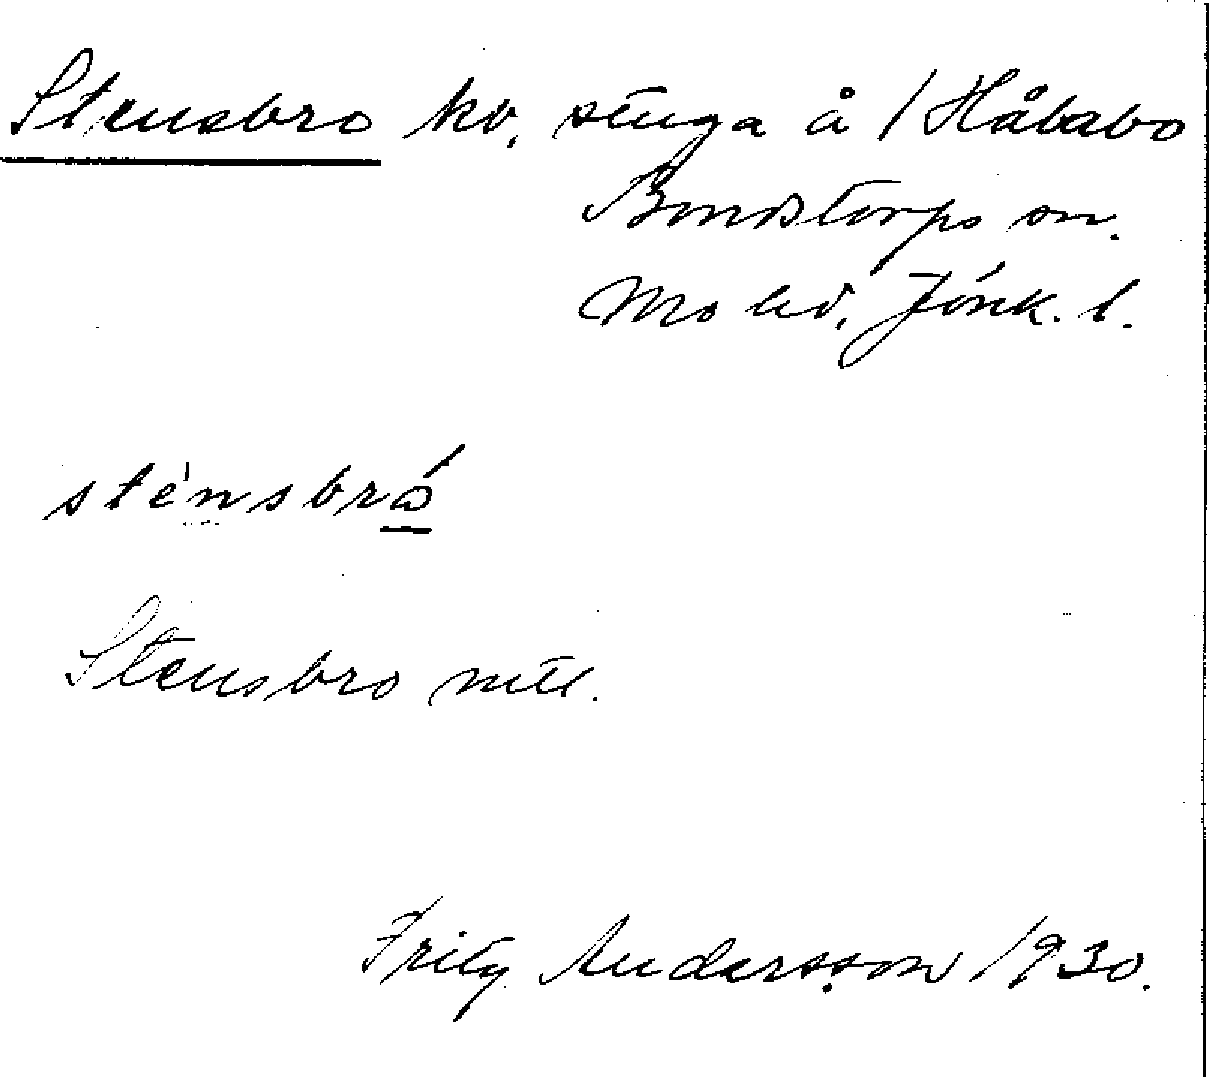 Stensbro kv. stuga å / Håbabo
Bondstorps sn.
Mo hd, Jönk. l.
sténsbró
Stensbro mtl.
Fritz Andersson 1930.